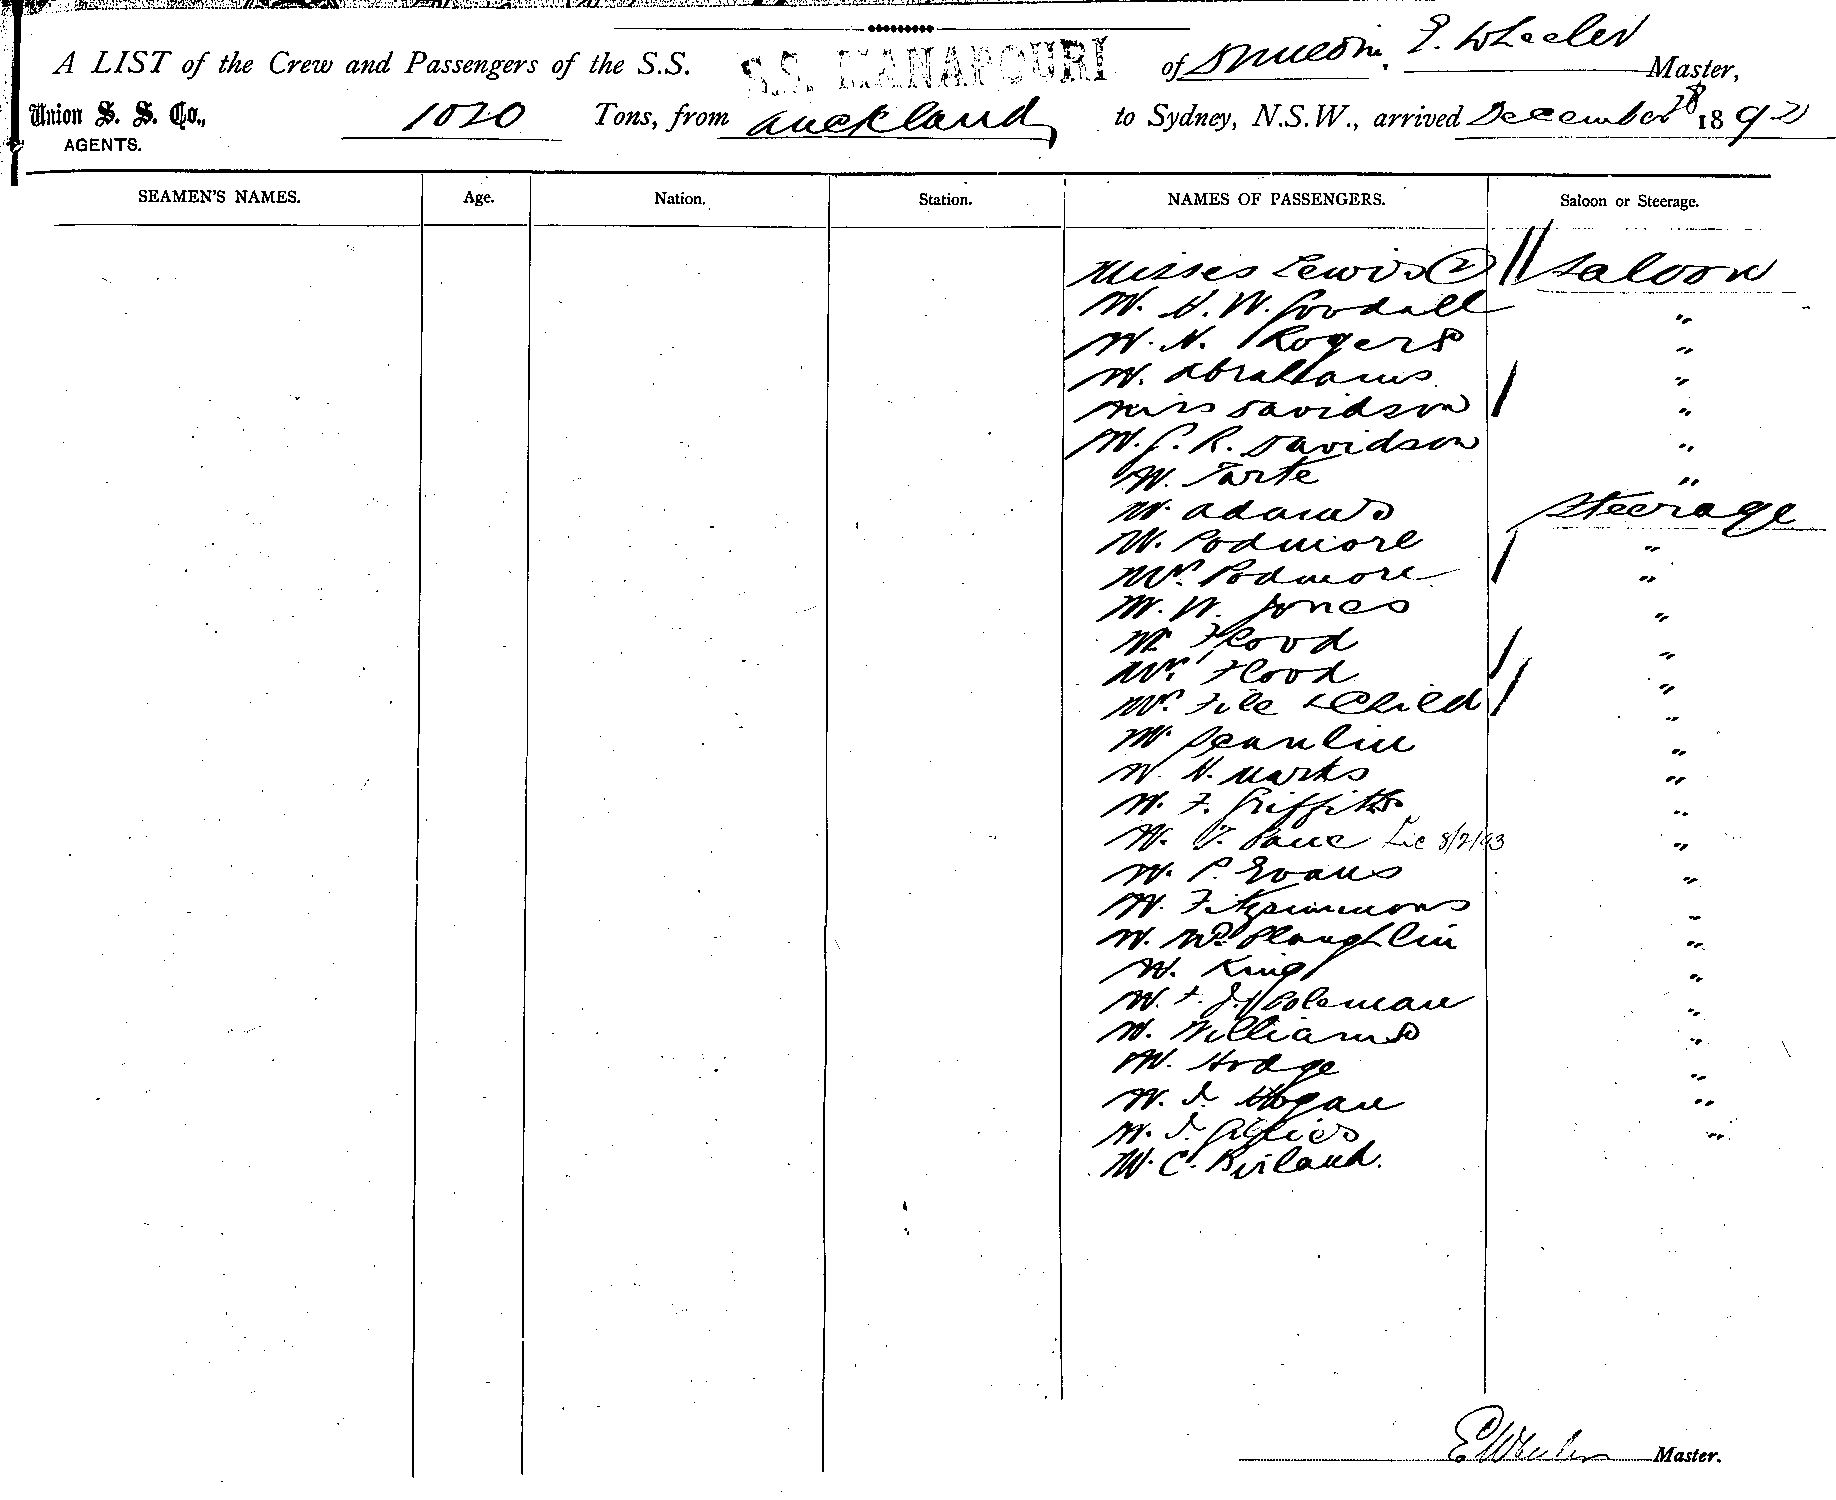 A LIST of the Crew and Passengers of the S.S. S.S. MANAPOURI of Dunedin, E. Wheeler Master,
Union S. S. Co., AGENTS. 1020 Tons, from Auckland to Sydney, N.S.W., arrived December 28 1892
SEAMEN'S NAMES. Age. Nation. Station. NAMES OF PASSENGERS. Saloon or Steerage.
Misses Lewis (2) Saloon
M. H. W. Goodall "
M. N. Rogers "
M. Abrahams "
Miss Davidson "
M. G. R. Davidson "
M. Tarte "
M. Adams Steerage
M. Podmore "
Mrs. Podmore "
M. W. Jones "
M. Flood "
Mrs. Flood "
Mrs. File & Child "
M. Scanlin "
M. H. Marks "
M. F. Griffiths "
M. Lic 8/2/93 "
M. P. Evans "
M. Fitzsimmons "
M. "
M. King "
M. Coleman "
M. Williams "
M. Hodge "
M. J. Hogan "
M. J. Gillies "
M. C.
E Wheeler Master.